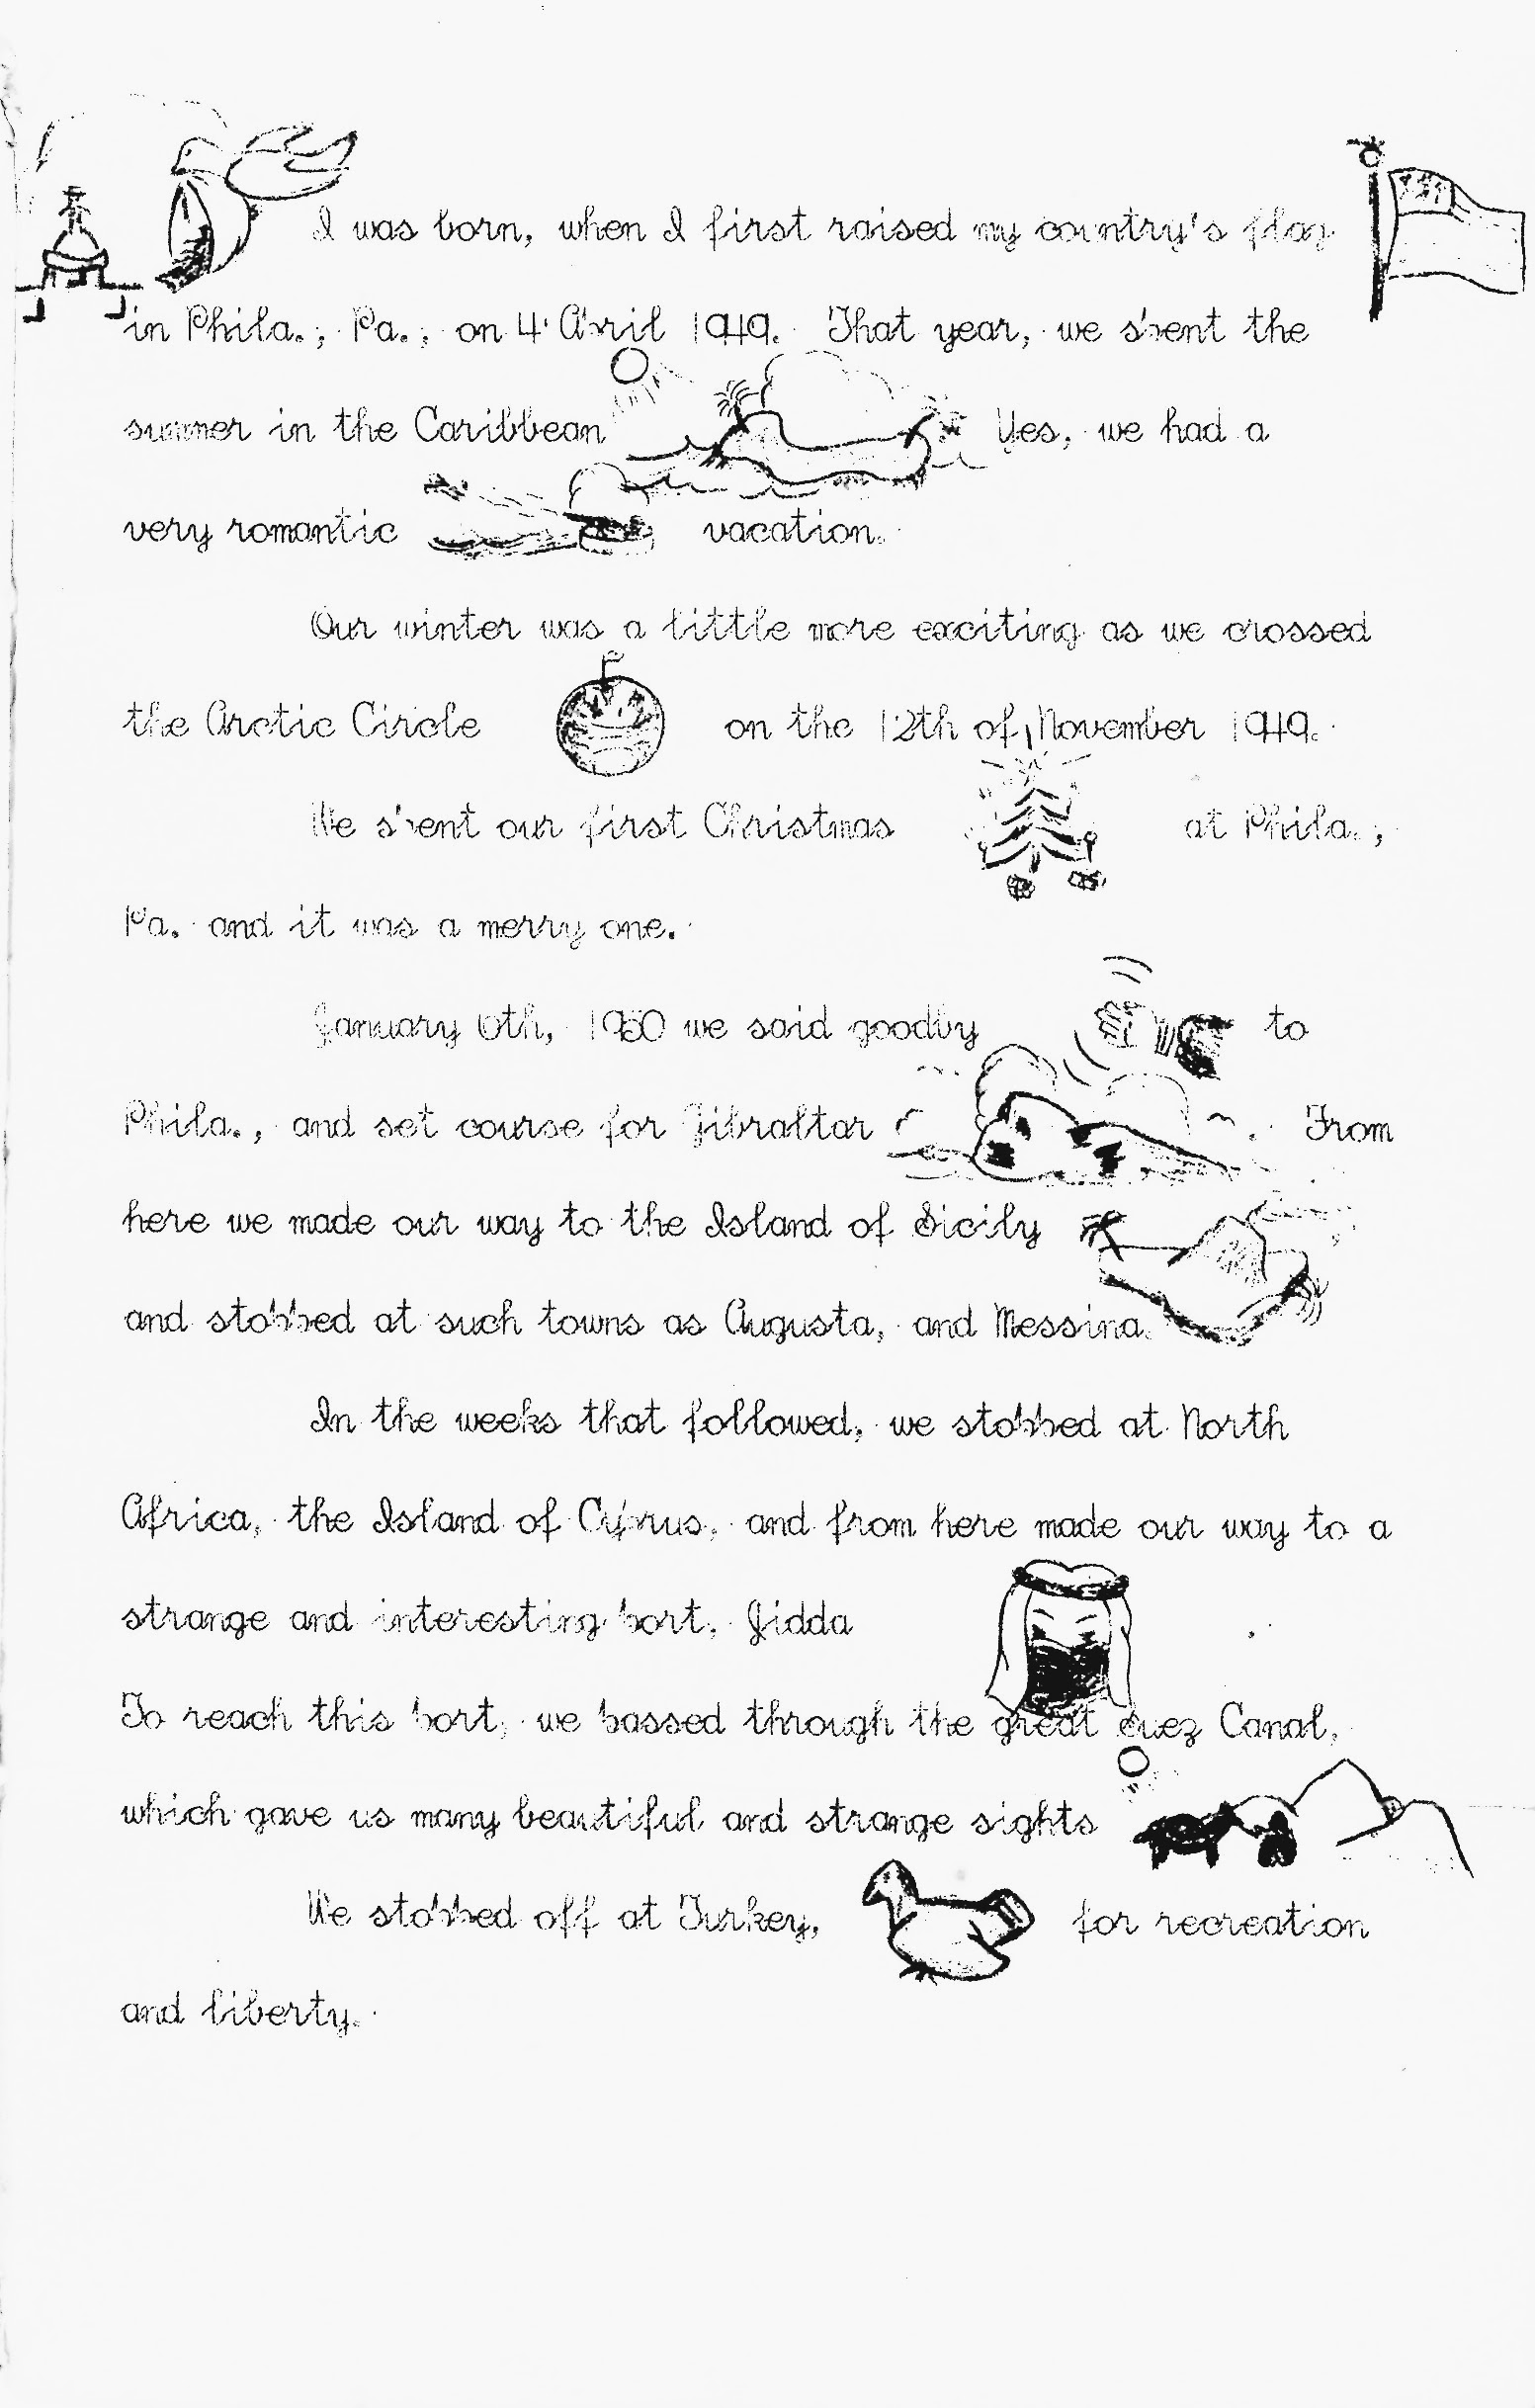 I was born, when I first raised my country's flag
in Phila., Pa., on 4 April 1949. That year, we spent the
summer in the Caribbean Yes, we had a
very romantic vacation.
Our winter was a little more exciting as we crossed
the Arctic Circle on the 12th of November 1949.
We spent our first Christmas at Phila.,
Pa. and it was a merry one.
January 6th, 1950 we said goodby to
Phila., and set course for Gibraltar . From
here we made our way to the Island of Sicily
and stopped at such towns as Augusta, and Messina.
In the weeks that followed, we stopped at North
Africa, the Island of Cyprus, and from here made our way to a
strange and interesting port, Jidda .
To reach this port, we passed through the great Suez Canal,
which gave us many beautiful and strange sights
We stopped off at Turkey, for recreation
and liberty.